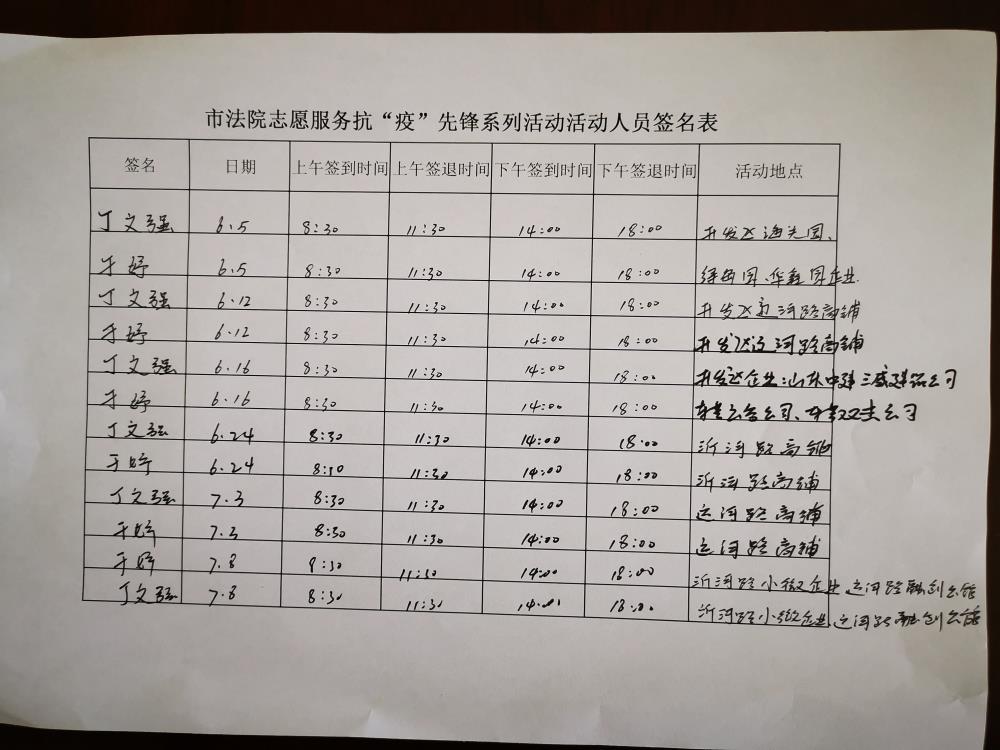 市法院志愿服务抗“疫”先锋系列活动活动人员签名表
签名 日期 上午签到时间 上午签退时间 下午签到时间 下午签退时间 活动地点
丁文强 6.5 8:30 11:30 14:00 18:00 开发区
于婷 6.5 8:30 11:30 14:00 18:00 华鑫园企业.
丁文强 6.12 8:30 11:30 14:00 18:00 开发区运河路商铺
于婷 6.12 8:30 11:30 14:00 18:00 开发区运河路商铺
丁文强 6.16 8:30 11:30 14:00 18:00 开发区企业:山东中建
于婷 6.16 8:30 11:30 14:00 18:00 公司
丁文强 6.24 8:30 11:30 14:00 18:00 沂河路商铺
于婷 6.24 8:30 11:30 14:00 18:00 沂河路商铺
丁文强 7.3 8:30 11:30 14:00 18:00 运河路商铺
于婷 7.3 8:30 11:30 14:00 18:00 运河路商铺
于婷 7.8 8:30 11:30 14:00 18:00 沂河路小微企业、运河路融创公馆
丁文强 7.8 8:30 11:30 14:00 18:00 沂河路小微企业、运河路融创公馆